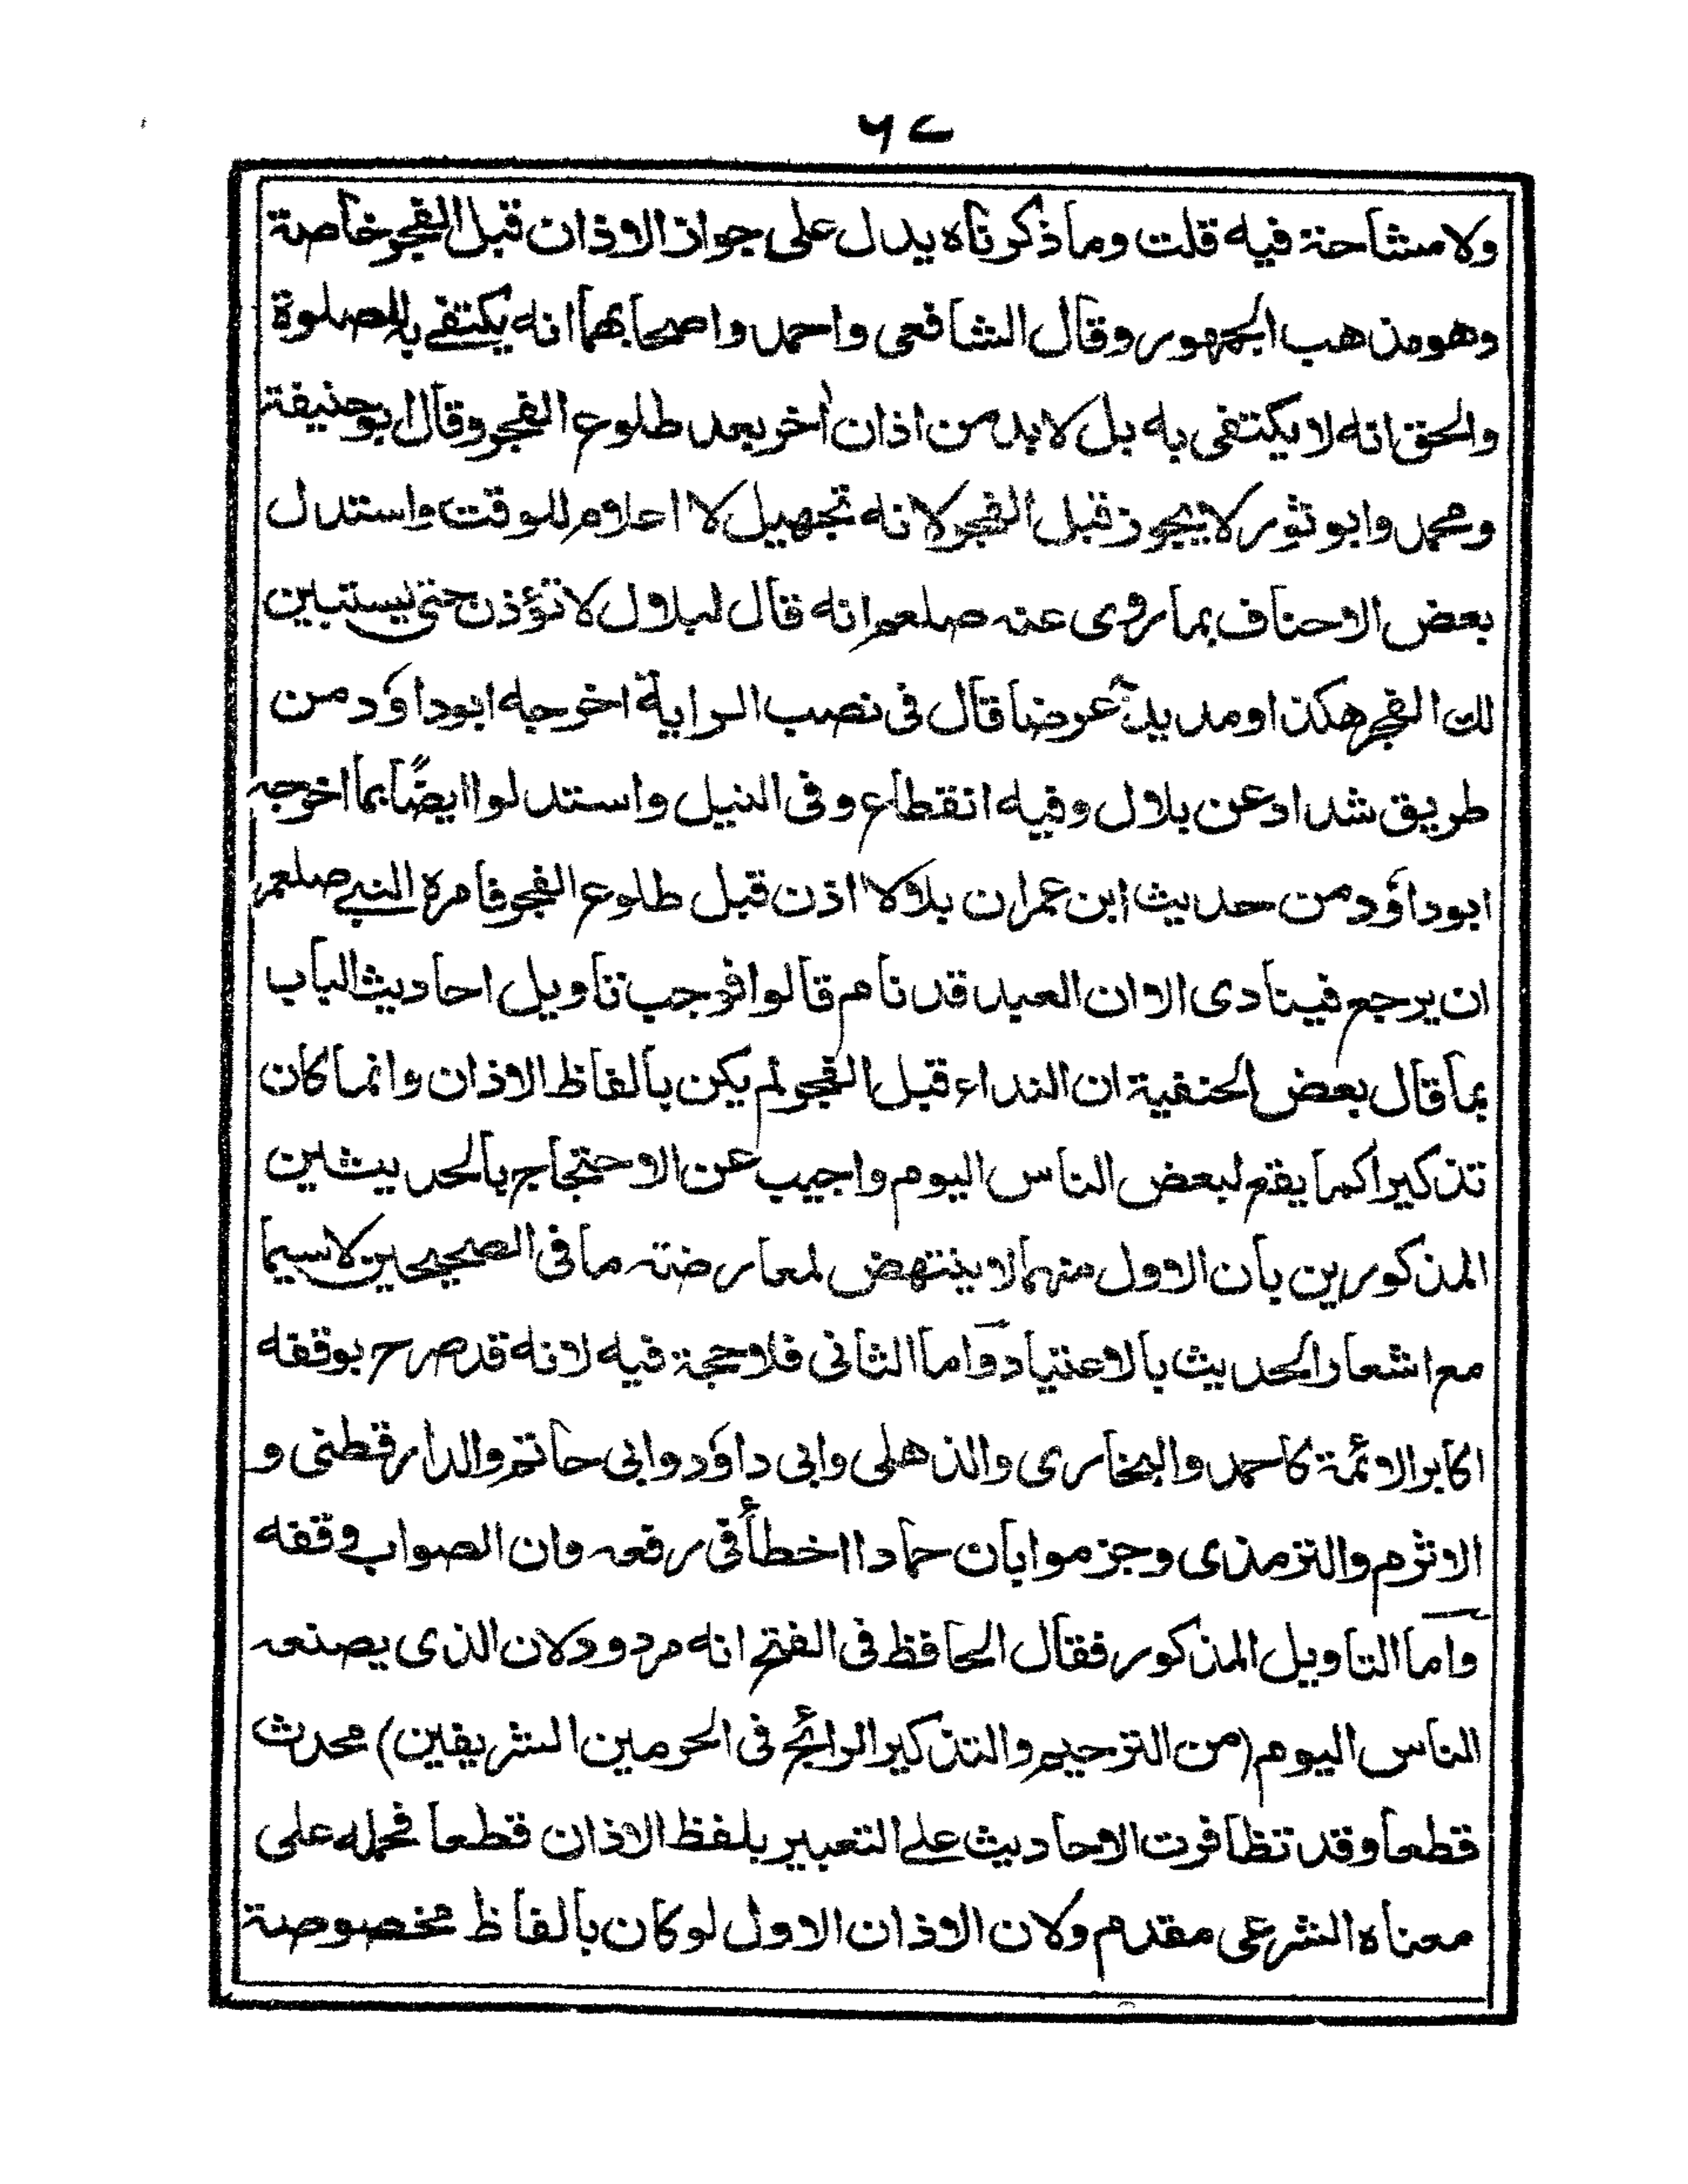 ٦٧
ولا مشاحنة فيه قلت وما ذكرناه يدل على جواز الاذان قبل الفجر خاصة
وهو مذهب الجمهور وقال الشافعي واحمد واصحابهما انه يكتفي به للصلوة
والحق انه لا يكتفى به بل لا بد من اذان أخر بعد طلوع الفجر وقال ابو حنيفة
ومحمد وابو ثور لا يجوز قبل الفجر لانه تجهيل لا اعلام للوقت واستدل
بعض الاحناف بما روى عنه صلعم انه قال لبلال لا تؤذن حتى يستبين
لك الفجر هكذا ومد يديه عرضا قال فى نصب الراية اخرجه ابو داؤد من
طريق شداد عن بلال وفيه انقطاع وفى النيل واستدلوا ايضًا بما اخرجه
ابو داؤد من حديث ابن عمر ان بلالا اذن قبل طلوع الفجر فامره النبي صلعم
ان يرجع فينادى الا ان العبد قد نام قالوا فوجب تاويل احاديث الباب
بما قال بعض الحنفية ان النداء قبل الفجر لم يكن بالفاظ الاذان وانما كان
تذكيرا كما يقع لبعض الناس اليوم واجيب عن الاحتجاج بالحديثين
المذكورين بان الاول منهما لا ينتهض لمعارضته ما فى الصحيحين لا سيما
مع اشعار الحديث بالاعتياد واما الثانى فلا حجة فيه لانه قد صرح بوقفه
اكابر الائمة كاحمد والبخارى والذهلى وابى داؤد وابى حاتم والدارقطنى و
الاثرم والترمذى وجزموا بان حمادا اخطأ فى رفعه وان الصواب وقفه
واما التاويل المذكور فقال الحافظ فى الفتح انه مردود لان الذى يصنعه
الناس اليوم (من الترحيم والتذكير الرائج فى الحرمين الشريفين) محدث
قطعا وقد تظافرت الاحاديث على التعبير بلفظ الاذان قطعا فحمله على
معناه الشرعى مقدم ولان الاذان الاول لو كان بالفاظ مخصوصة